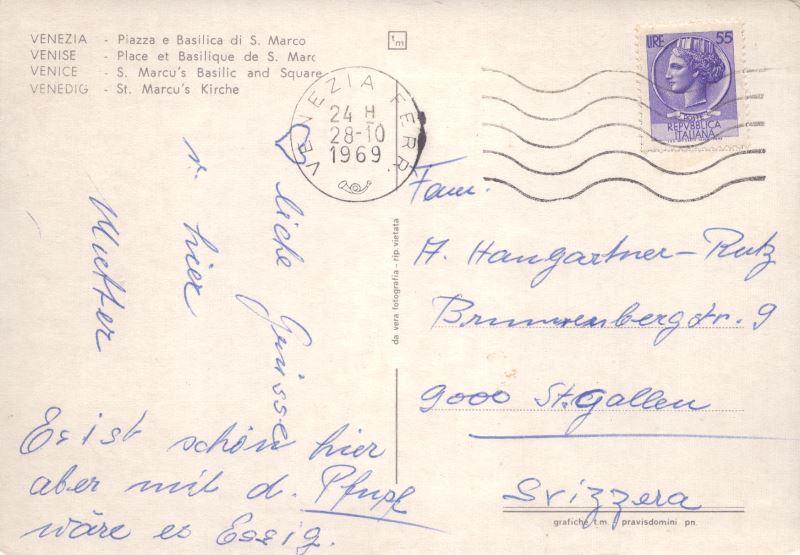 VENEZIA - Piazza e Basilica di S. Marco
VENISE - Place et Basilique de S. Marc
VENICE - S. Marcu's Basilic and Square
VENEDIG - St. Marcu's Kirche
tm
VENEZIA FERR.
24 H.
28-10
1969
LIRE 55
REPVBBLICA
ITALIANA
♡liche Grüsse
v. hier
Mutter
Es ist schön hier
aber mit d. Pfnüsl
wäre es Essig.
da vera fotografia - rip. vietata
Fam.
A. Hangartner-Rutz
Brunnenbergstr. 9
9000 St.Gallen
Svizzera
grafiche t.m. pravisdomini pn.